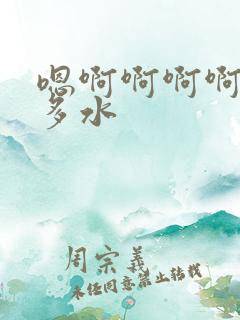 嗯啊啊啊啊
多水
周宗義
未任同意禁止转载